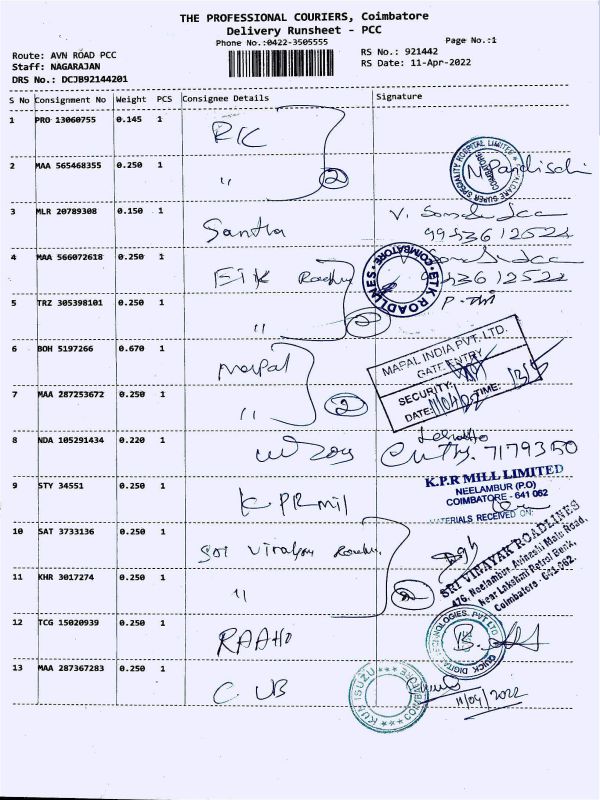 THE PROFESSIONAL COURIERS, Coimbatore
Delivery Runsheet - PCC
Phone No.:0422-3505555
Page No.:1
Route: AVN ROAD PCC
RS No.: 921442
Staff: NAGARAJAN
RS Date: 11-Apr-2022
DRS No.: DCJB92144201
S No Consignment No Weight PCS Consignee Details Signature
1 PRO 13060755 0.145 1 RK
2 MAA 565468355 0.250 1 " 2
SPECIALITY HOSPITAL LIMITED
COIMBATORE
3 MLR 20789308 0.150 1 Santha V.
4 MAA 566072618 0.250 1 ETK
ETK ROADLINES
COIMBATORE
5 TRZ 305398101 0.250 1 " 2
6 BOH 5197266 0.670 1 Mapal
MAPAL INDIA PVT. LTD.
GATE ENTRY
SECURITY:
DATE: 11/04/22 TIME:
7 MAA 287253672 0.250 1 " 2
8 NDA 105291434 0.220 1 7179350
9 STY 34551 0.250 1 KPR mil
K.P.R MILL LIMITED
NEELAMBUR (P.O)
COIMBATORE - 641 062
MATERIALS RECEIVED ON:
10 SAT 3733136 0.250 1 Sri Vinayaga
SRI VINAYAK ROADLINES
476, Neelambur, Avinashi Main Road,
Near Lakshmi Petrol Bunk,
Coimbatore - 641-062.
11 KHR 3017274 0.250 1 " 2
12 TCG 15020939 0.250 1 RAAHO
QUICK DIGITAL TECHNOLOGIES PVT LTD
13 MAA 287367283 0.250 1 CUB
KUN ISUZU
COIMBATORE
11/04/2022